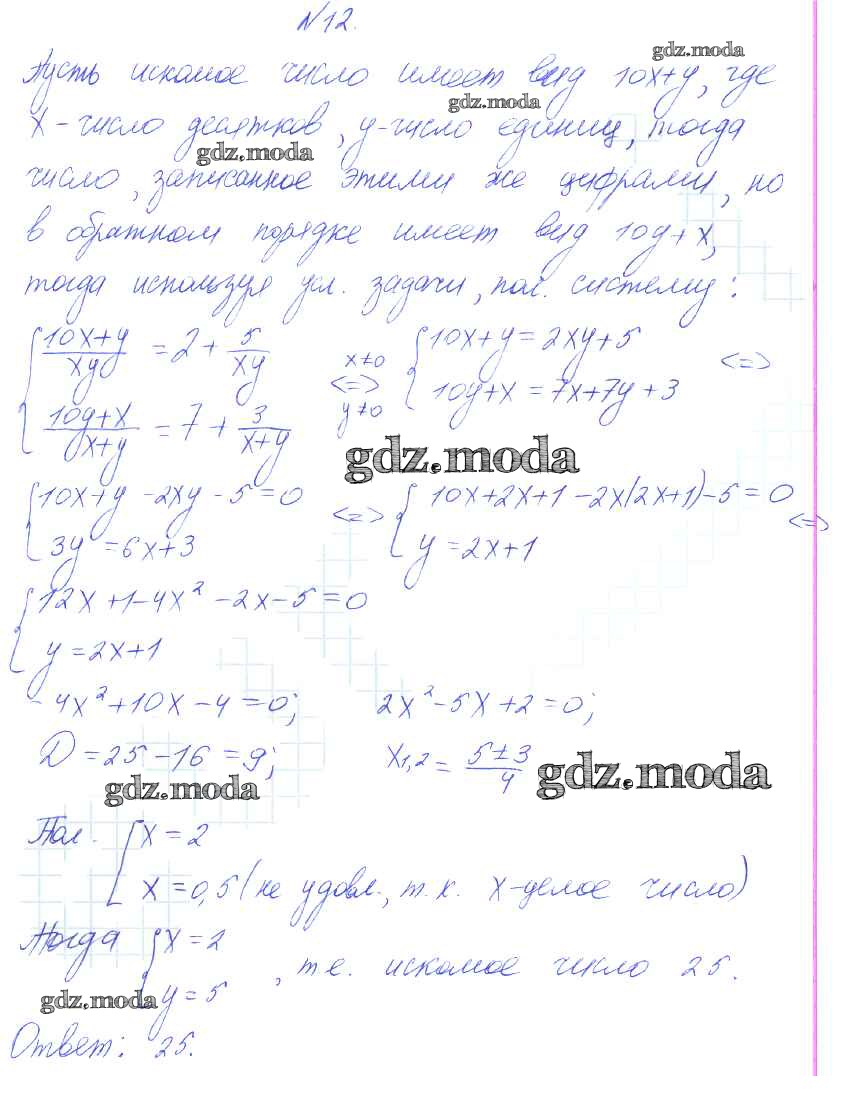 N12.
gdz.moda
Пусть искомое число имеет вид 10x+y, где
gdz.moda
x - число десятков, y - число единиц, тогда
gdz.moda
число, записанное этими же цифрами, но
в обратном порядке имеет вид 10y+x,
тогда используя усл. задачи, пол. систему:
{ (10x+y)/(xy) = 2 + 5/(xy) x≠0 <=> y≠0 { 10x+y = 2xy+5 <=>
{ (10y+x)/(x+y) = 7 + 3/(x+y) { 10y+x = 7x+7y+3
gdz.moda
{ 10x+y - 2xy - 5 = 0 <=> { 10x+2x+1 - 2x(2x+1) - 5 = 0 <=>
{ 3y = 6x+3 { y = 2x+1
{ 12x+1-4x² - 2x - 5 = 0
{ y = 2x+1
-4x²+10x-4=0; 2x²-5x+2=0;
D=25-16=9; x1,2 = (5±3)/4
gdz.moda gdz.moda
Пол. [ x=2
[ x=0,5 (не удовл., т.к. x-целое число)
Тогда { x=2
{ y=5 , т.е. искомое число 25.
gdz.moda
Ответ: 25.